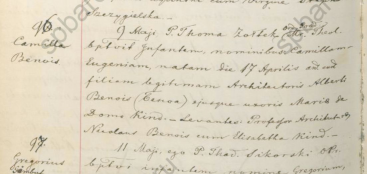 Szczygielska. –
96
Camilla
Benois
9 Maji P. Thoma
bptvit Infantem, nominibus Camillam
Eugeniam, natam die 17 Aprilis
filiam legitimam Architectonis Alberti
Benois ejusque uxoris Mariæ de
Domo Kind. – Levantes: Professor Architect
Nicolaus Benois cum Elisabetha Kind. –
97
Gregorius
11 Maji, ego P. Thad. Sikorski
bptvi infantem nomine Gregorium,